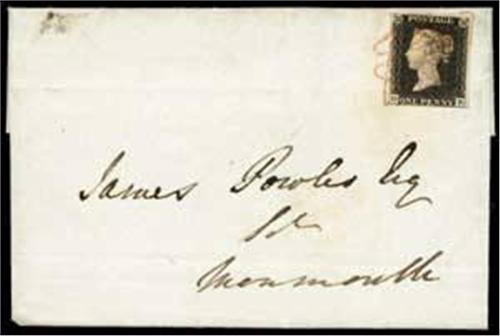 POSTAGE
ONE PENNY
James Powles Esq
Monmouth